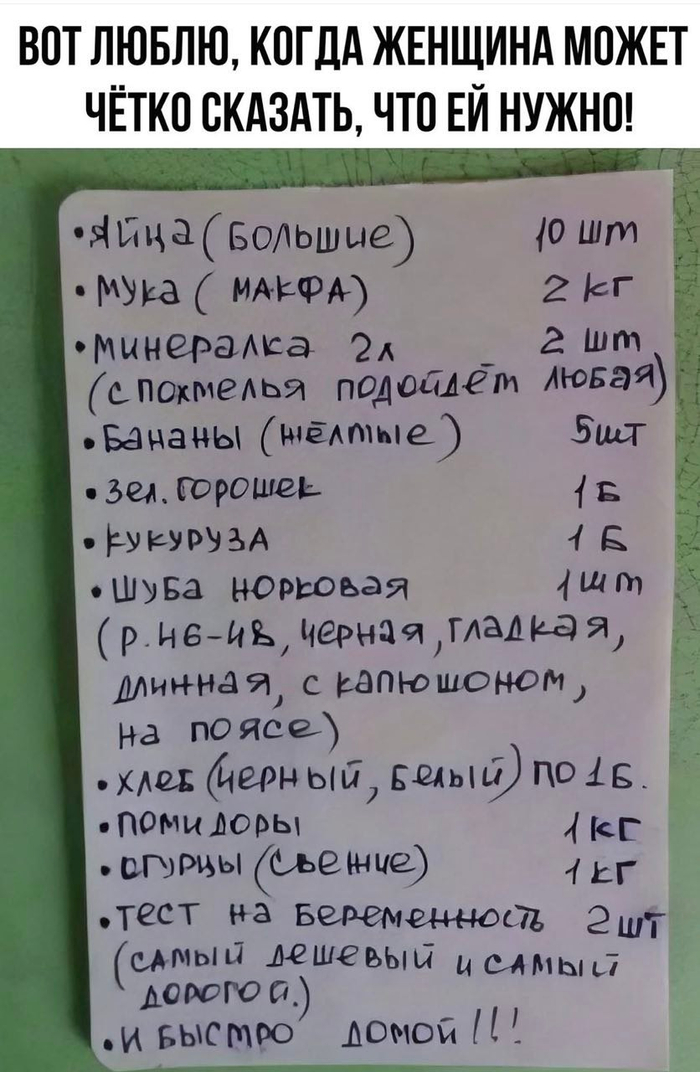 ВОТ ЛЮБЛЮ, КОГДА ЖЕНЩИНА МОЖЕТ
ЧЁТКО СКАЗАТЬ, ЧТО ЕЙ НУЖНО!
•Яйца (большие) 10 шт
•Мука (МАКФА) 2 кг
•Минералка 2л 2 шт
(с похмелья подойдёт любая)
•Бананы (жёлтые) 5шт
•Зел. горошек 1Б
•Кукуруза 1Б
•Шуба норковая 1шт
(р. 46-48, черная, гладкая,
длинная, с капюшоном,
на поясе)
•хлеб (черный, белый) по 1Б.
•помидоры 1кг
•огурцы (свежие) 1кг
•тест на беременность 2шт
(самый дешевый и самый
дорогой.)
•И быстро домой!!!